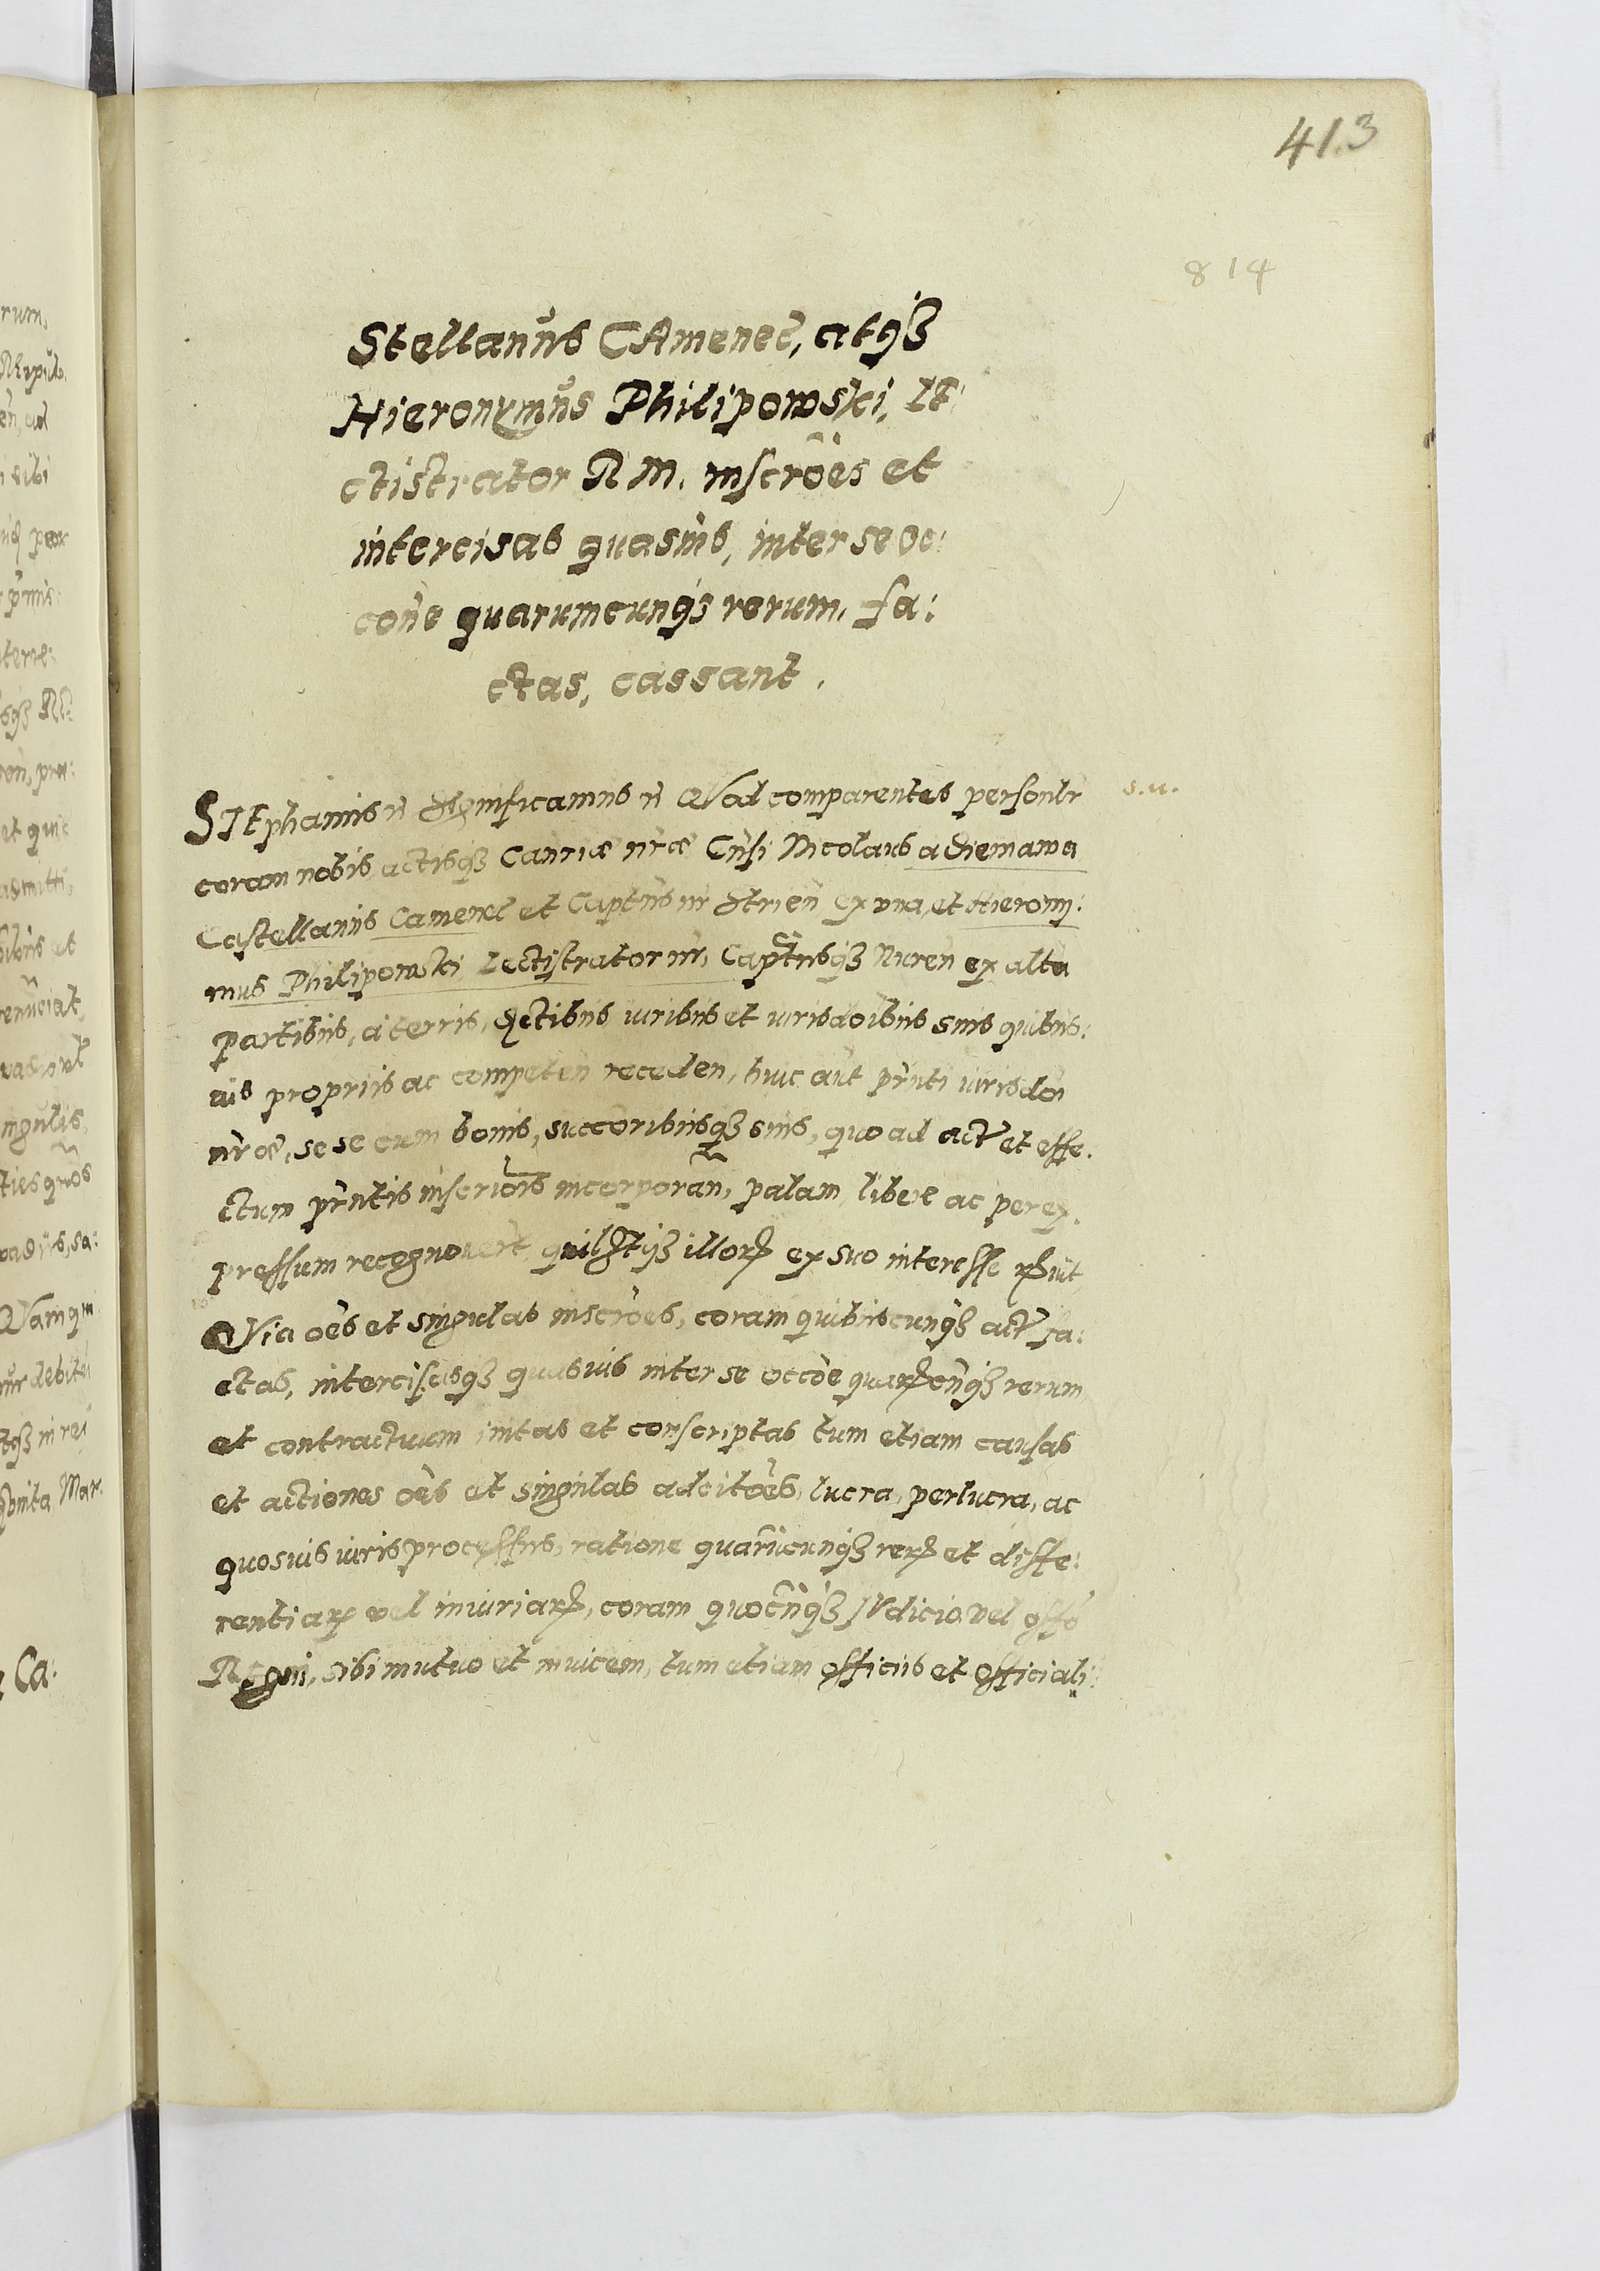 413
814
Stellanus CAmenec̃, atq̃ȝ
Hieronymus Philipowski, le:
ctistrator R M. inscrões et
intercisas quasuis, inter se oc:
cõne quarumcunq̃ȝ rerum, fa:
ctas, cassant.
s.u.
STEphanus ñ Significamus ñ QVod comparentes personlr
coram nobis, actisq̃ȝ Canriæ nr̃æ Cñsi Nicolaus a Diemawa
Castellanus Camenec̃ et Captñs nr Strien̄ ex vna, et Hierony:
mus Philipowski Lectistrator nr, Captñsq̃ȝ Nuren̄ ex altera
partibus, a terris, iuribus et iurisdõibus suis quibus:
uis propriis ac competeñ receden, huic aũt pr̃nti iurisdõi
nr̃æ, se se cum bonis, succoribusq̃ȝ suis, quo ad actũ et effe:
ctum pr̃ntis inscriõis incorporañ, palam libere ac perex:
pressum recognouerũt quilibetq̃ȝ illorȝ ex suo interesse
QVia oẽs et singulas inscrões, coram quibuscunq̃ȝ actis fa:
ctas, intercisasq̃ȝ quasuis inter se occõe quarȝcũnq̃ȝ rerum
et contractuum initas et conscriptas tum etiam causas
et actiones oẽs et singulas adcitões, lucra, perlucra, ac
quosuis iuris processus, ratione quarũcunq̃ȝ rerȝ et diffe:
rentiarȝ vel iniuriarȝ, coram quocũnq̃ȝ IVdicio vel offõ
Regni, sibi mutuo et inuicem, tum etiam officiis et officiali: